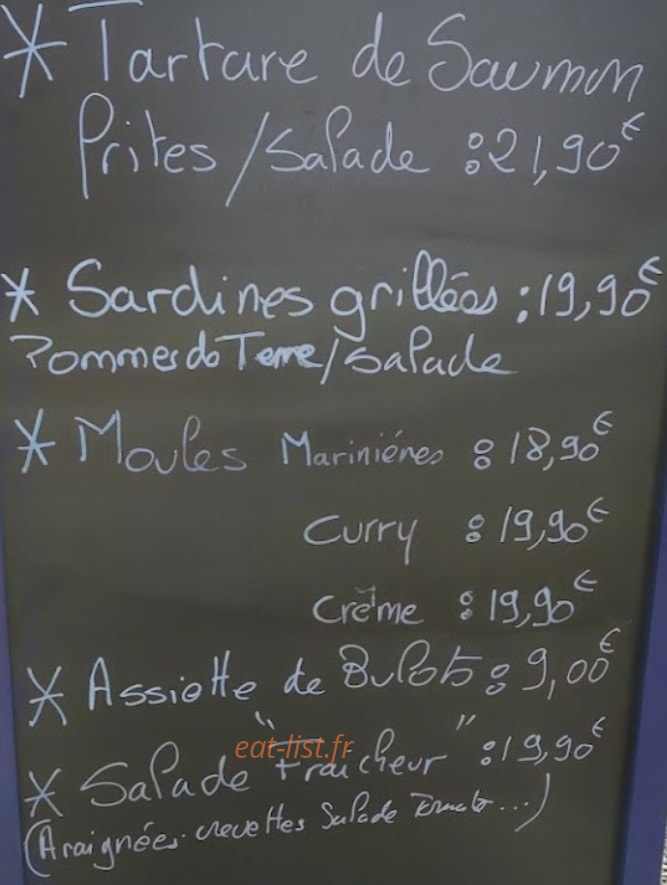 * Tartare de Saumon
Frites/Salade : 21,90€
* Sardines grillées : 19,90€
Pommes de Terre/Salade
* Moules Marinières : 18,90€
Curry : 19,90€
Crème : 19,90€
* Assiette de Bulots : 9,00€
* Salade "Fraîcheur" : 19,90€
eat-list.fr
(Araignées crevettes Salade Tomate...)